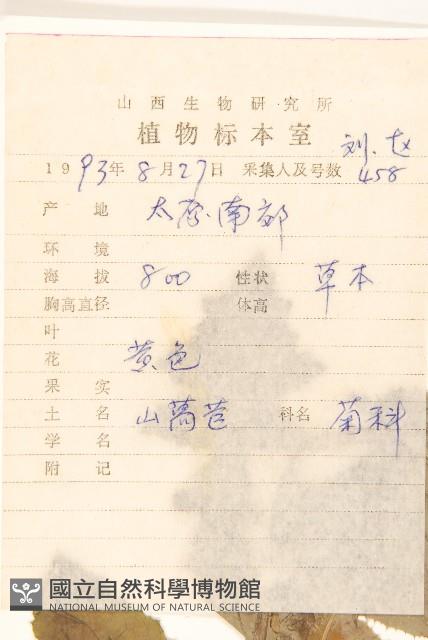 山西生物研究所
植物标本室
刘、赵
1993年8月27日 采集人及号数 458
产地 太原南部
环境
海拔 800 性状 草本
胸高直径 体高
叶
花 黄色
果实
土名 山莴苣 科名 菊科
学名
附记
國立自然科學博物館
NATIONAL MUSEUM OF NATURAL SCIENCE